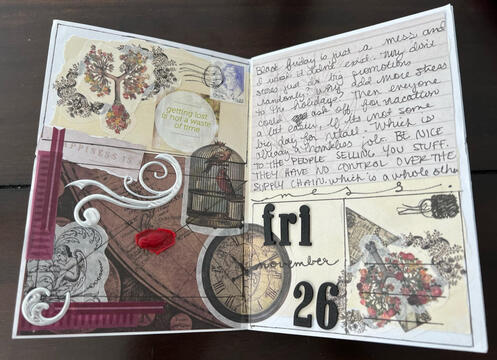 getting lost
is not a waste
of time
HAPPINESS IS
Black friday is just a mess and
I wish it didn't exist. Why don't
stores just do big promotions
randomly? Why add more stress
to the holidays? Then everyone
could ask off for vacation
a lot easier, if its not some
big day for retail. Which is
always a horrible job. BE NICE
TO THE PEOPLE SELLING YOU STUFF.
THEY HAVE NO CONTROL OVER THE
SUPPLY CHAIN. which is a whole other
mess.
fri
november
26